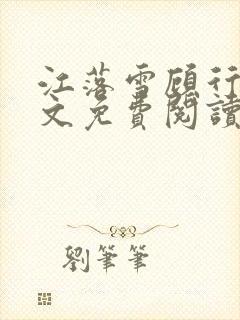 江落雪顾行
文免費閱讀
劉筆筆